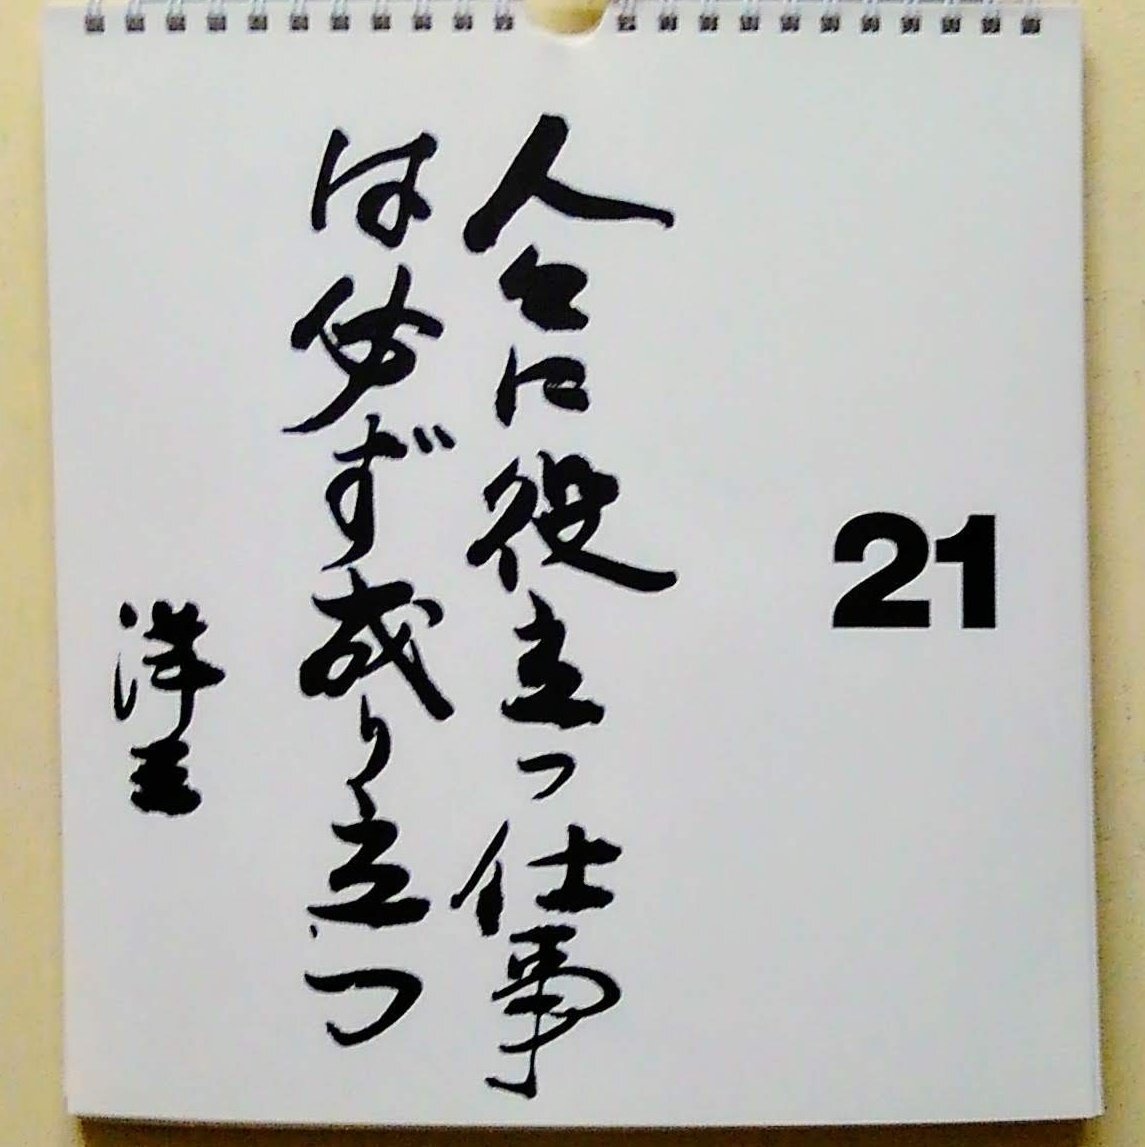 21
人々に役立つ仕事
は必ず成り立つ
洋三